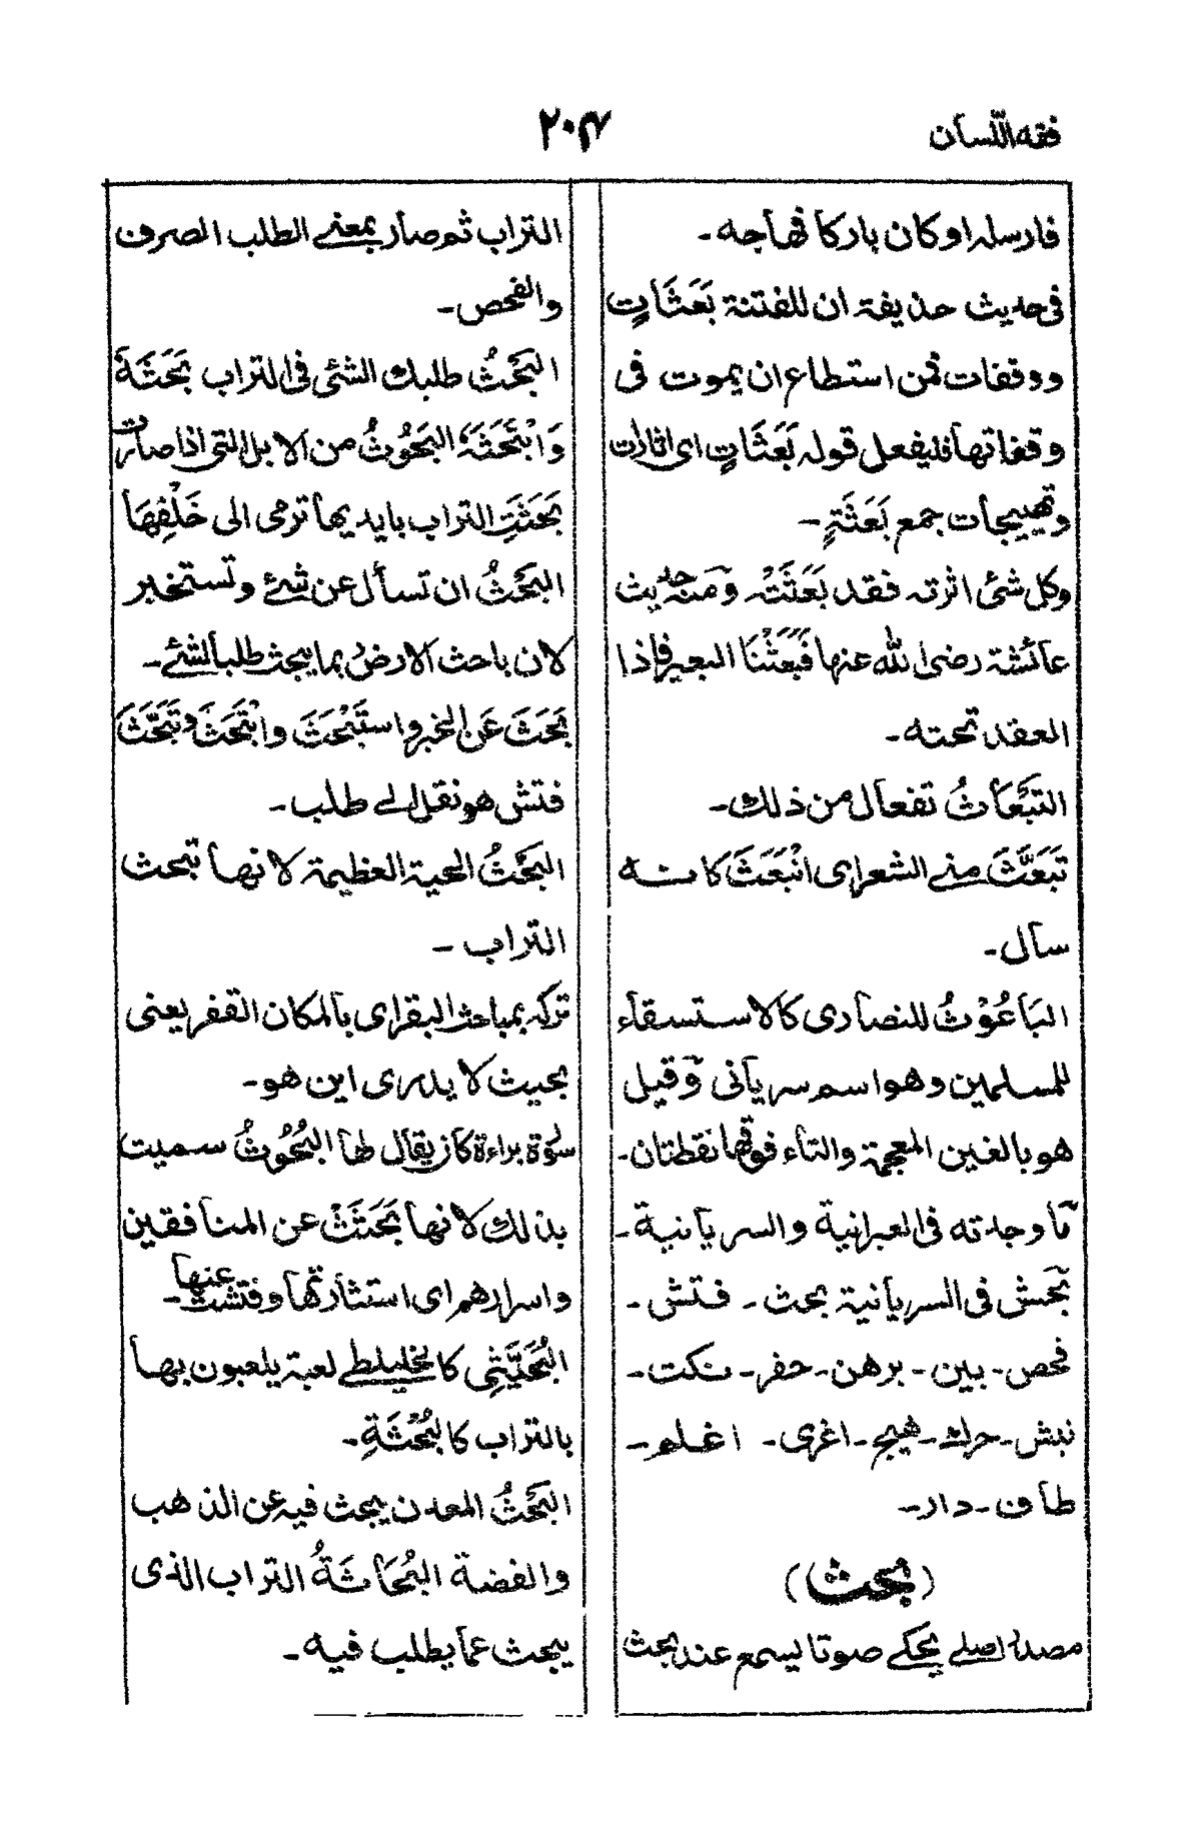 فقه اللسان
٢٠٣٧
فارسله او كان باركا فهاجه۔
فى حديث حذيفة ان للفتنة بَعَثَاتٍ
ووقفات فمن استطاع ان يموت فى
وقفاتها فليفعل قوله بَعَثَاتٍ اى اثارات
وتهييجات جمع بَعَثَةٍ۔
وكل شئ اثرته فقد بَعَثْتَه ومنه حديث
عائشة رضى الله عنها فَبَعَثْنَا البعير فاذا
العقد تحته۔
التَبْعَاثُ تفعال من ذلك۔
تَبَعَّثَ منے الشعر اى انْبَعَثَ كانه
سال۔
البَاعُوْثُ للنصارى كالاستسقاء
للمسلمين وهو اسم سريانى وقيل
هو بالغين المعجمة والتاء فوقها نقطتان۔
ما وجدته فى العبرانية والسريانية۔
بَحَش فى السريانية بحث۔ فتش۔
فحص۔ بين۔ برهن۔ حفر۔ نكت۔
نبش۔ حرك۔ هيج۔ اغرى۔ اغلم۔
طاف۔ دار۔
(بحث)
مصدر اصلے يحكے صوتا يسمع عند بحث
التراب ثم صار بمعنے الطلب الصرف
والفحص۔
البَحْثُ طلبك الشئ فى التراب بَحَثَهٗ
وَابْتَحَثَهٗ البَحُوْثُ من الابل التى اذا صارت
بَحَثَتِ التراب بايديها ترمى الى خَلْفِهَا
البَحْثُ ان تسأل عن شئے وتستخبر
لان باحث الارض بما يبحث طلبا لشئے۔
بَحَثَ عَن الخبر واستَبْحَثَ وابْتَحَثَ وتَبَحَّثَ
فتش هو نقل الے طلب۔
البَحْثُ الحية العظيمة لانها تبحث
التراب۔
تركه بمباحث البقر اى بالمكان القفر يعنى
بحيث لا يدرى اين هو۔
سورة براءة كان يقال لها البُحُوْثُ سميت
بذلك لانها بَحَثَتْ عن المنافقين
واسرارهم اى استثارتها وفتشت عنها۔
البُحَّيْثِى كالخليطے لعبة يلعبون بها
بالتراب كالبُحْثَةِ۔
البَحْثُ المعدن يبحث فيه عن الذهب
والفضة البُحَاثَةُ التراب الذى
يبحث عما يطلب فيه۔